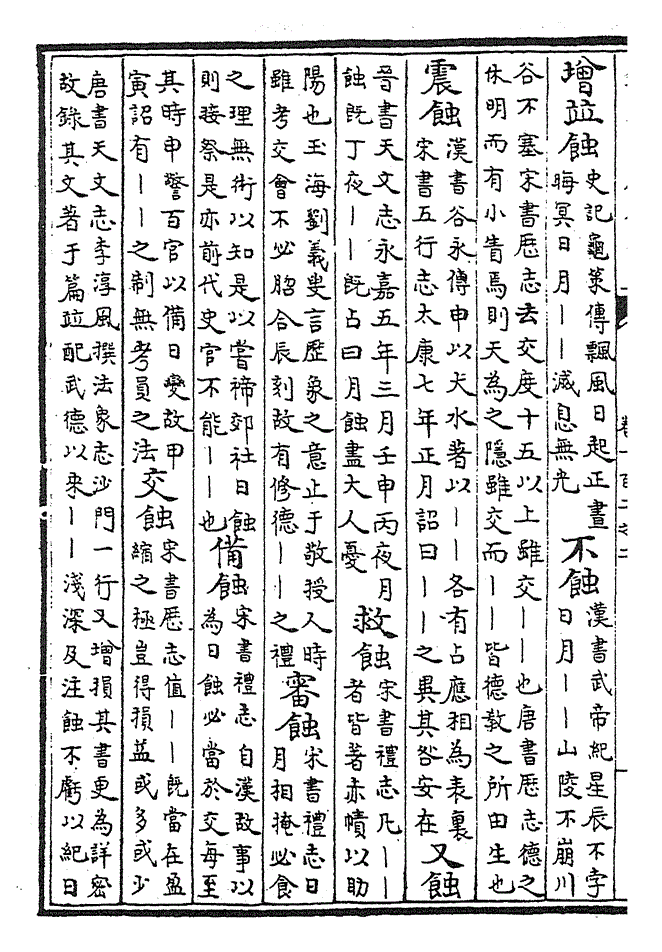 增並蝕史記龜筴傳飄風日起正晝晦冥日月——滅息無光不蝕漢書武帝紀星辰不孛日月——山陵不崩川
谷不塞宋書厯志去交度十五以上雖交——也唐書厯志德之休明而有小眚焉則天為之隱雖交而——皆德教之所由生也
震蝕漢書谷永傳申以大水著以——各有占應相為表裏宋書五行志太康七年正月詔曰——之異其咎安在又蝕
晉書天文志永嘉五年三月壬申丙夜月蝕既丁夜——既占曰月蝕盡大人憂救蝕宋書禮志凡——者皆著赤幘以助
陽也玉海劉羲叟言歷象之意止于敬授人時雖考交會不必脗合辰刻故有修德——之禮審蝕宋書禮志日月相掩必食
之理無術以知是以嘗禘郊社日蝕則接祭是亦前代史官不能——也備蝕宋書禮志自漢故事以為日蝕必當於交每至
其時申警百官以備日變故甲寅詔有——之制無考員之法交蝕宋書厯志值——既當在盈縮之極豈得損益或多或少
唐書天文志李淳風撰法象志沙門一行又增損其書更為詳密故錄其文著于篇並配武德以來——淺深及注蝕不虧以紀日